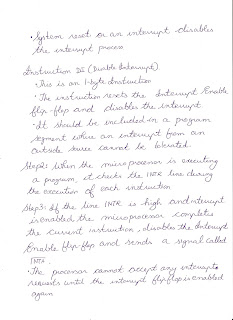 • System reset or an interrupt disables
the interrupt process
Instruction DI (Disable Interrupt)
• This is an 1-byte instruction
• The instruction resets the Interrupt Enable
flip-flop and disables the interrupt
• It should be included in a program
segment where an interrupt from an
outside source cannot be
Step2: When the microprocessor is executing
a program, it checks the INTR line during
the execution of each instruction
Step3: If the line INTR is high and interrupt
is enabled the microprocessor completes
the current instruction, disables the Interrupt
Enable flip-flop and sends a signal called
INTA.
• The processor cannot accept any interrupt
requests until the interrupt flip flop is enabled
again